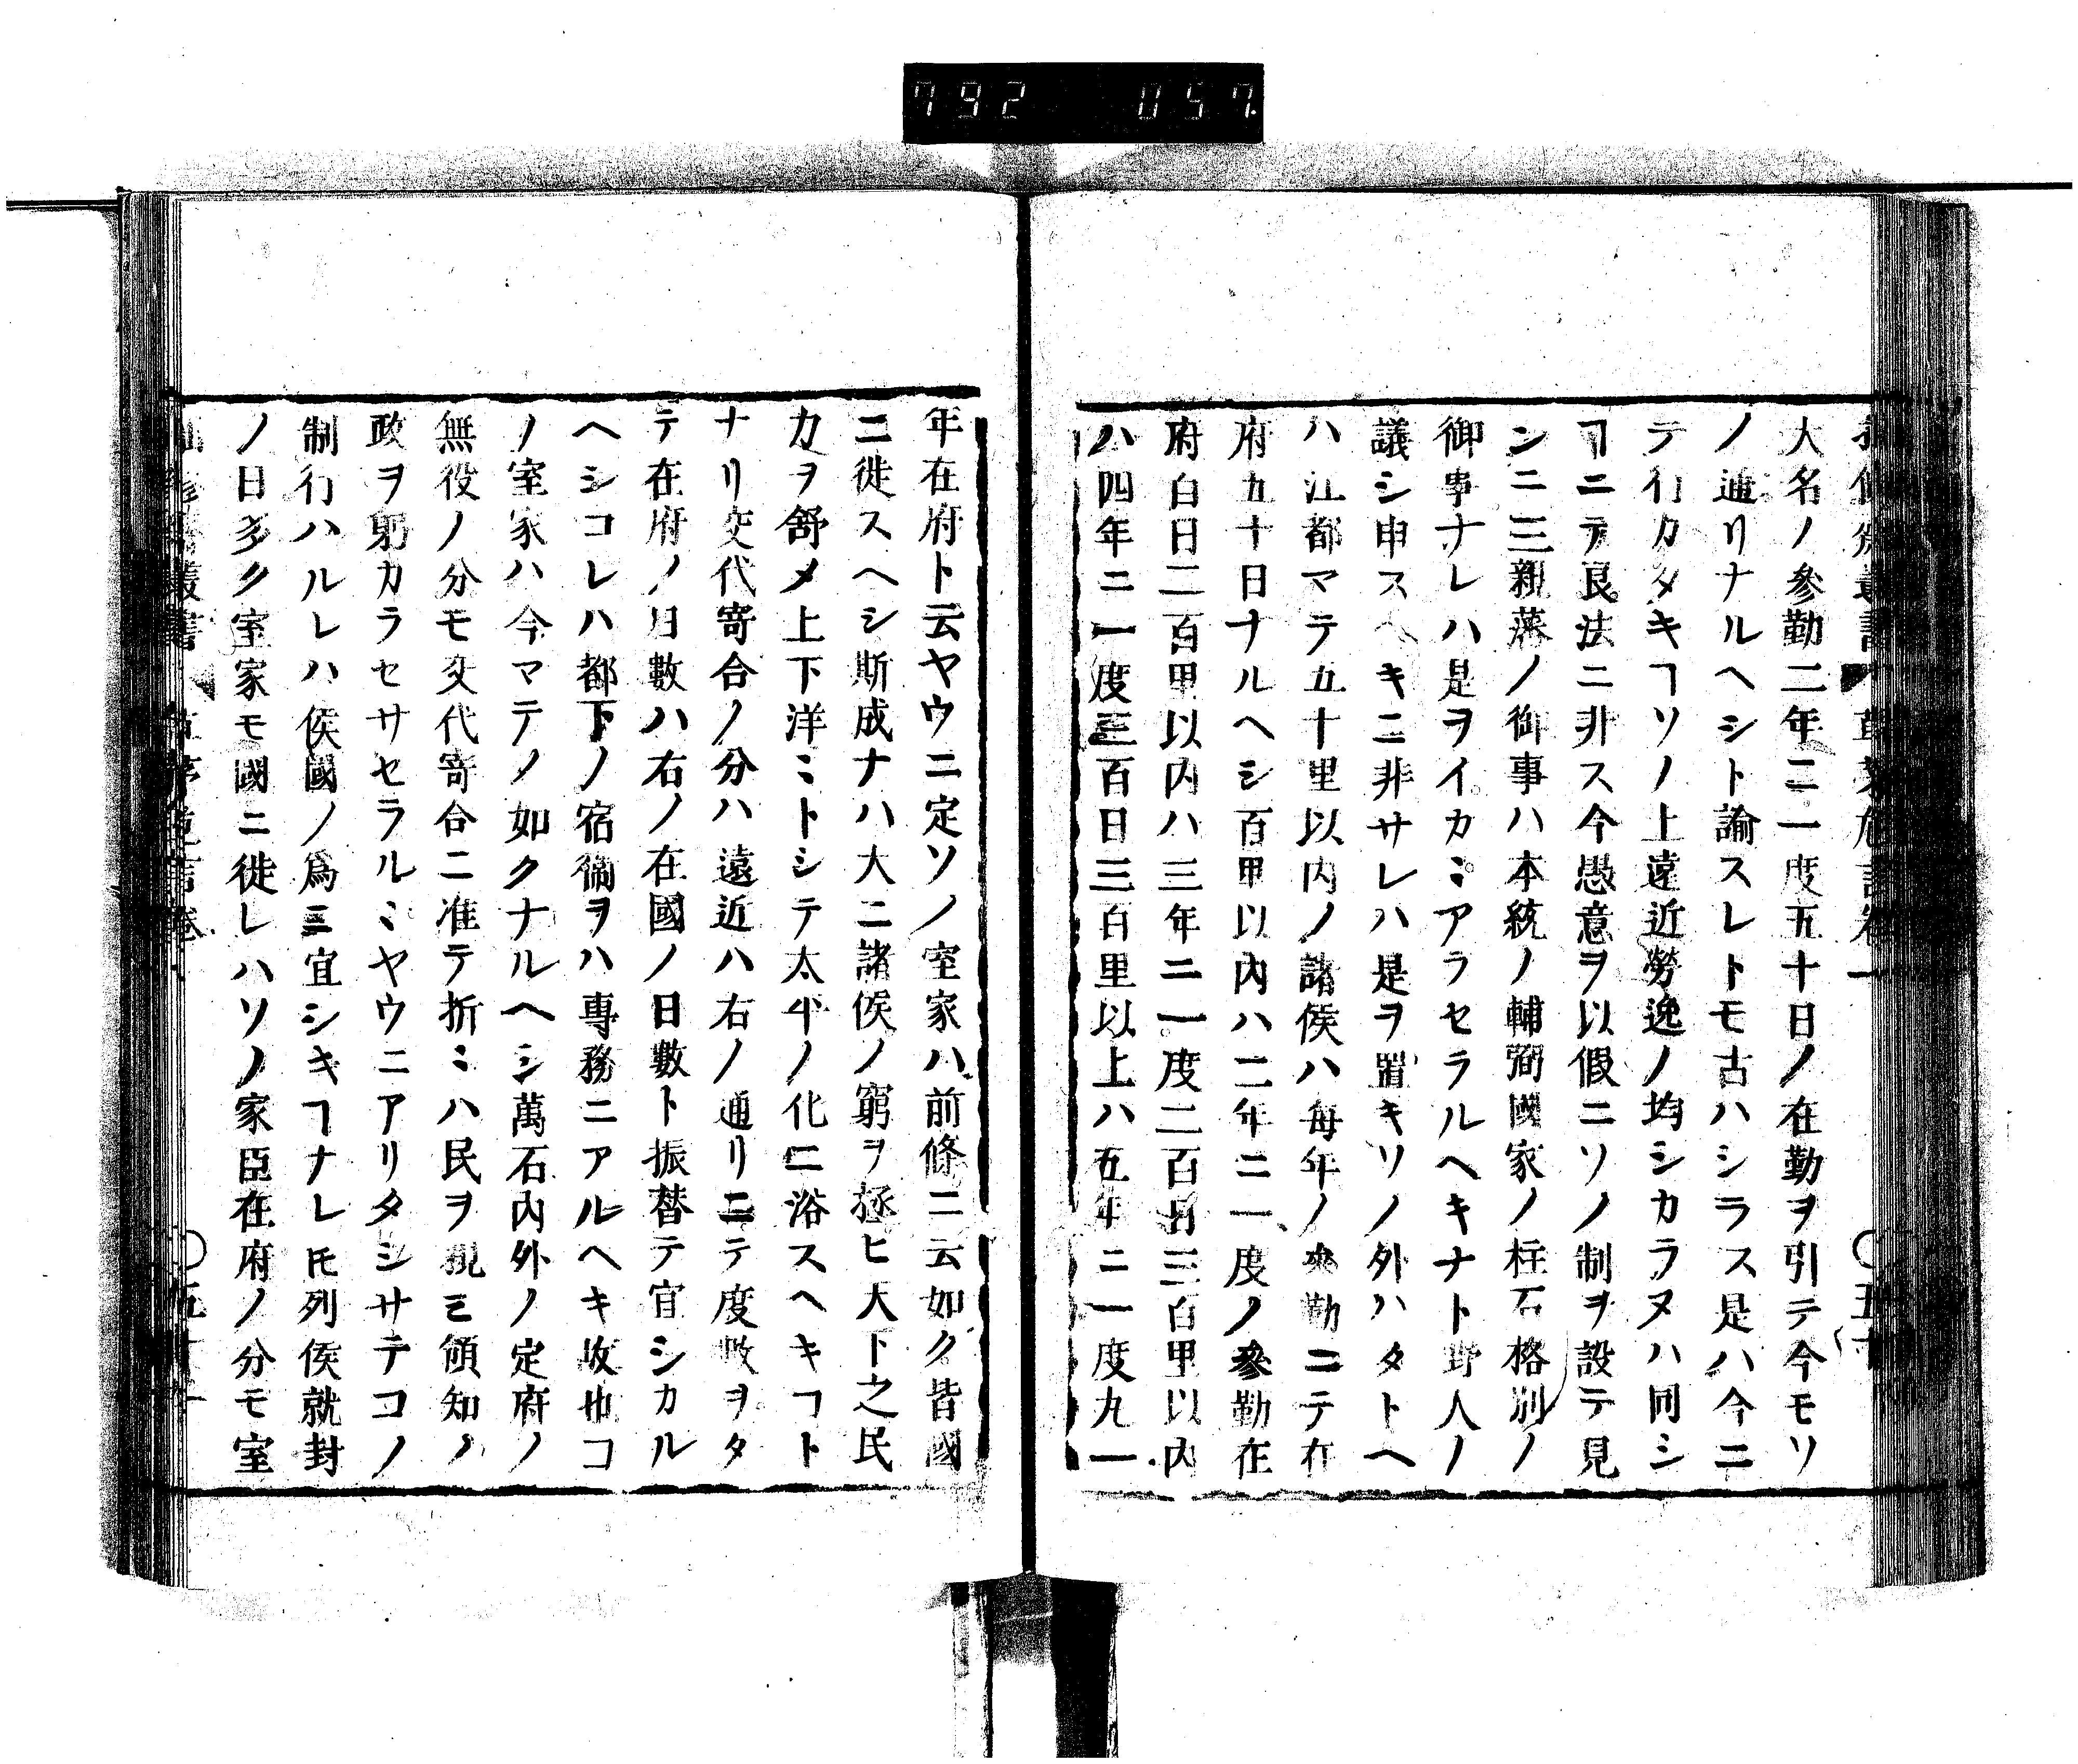 792 057
大名ノ參勤二年ニ一度五十日ノ在勤ヲ引テ今モソ
ノ通リナルヘシト諭スレトモ古ハシラス是ハ今ニ
テ行カタキヿソノ上遠近勞逸ノ均シカラヌハ同シ
ヿニテ良法ニ非ス今愚意ヲ以假ニソノ制ヲ設テ見
ンニ三親藩ノ御事ハ本統ノ輔弼國家ノ柱石格別ノ
御事ナレハ是ヲイカヾアラセラルヘキナト野人ノ
議シ申スヘキニ非サレハ是ヲ置キソノ外ハタトヘ
ハ江都マテ五十里以内ノ諸侯ハ每年ノ參勤ニテ在
府五十日ナルヘシ百里以內ハ二年ニ一度ノ參勤在
府百日二百里以内ハ三年ニ一度二百日三百里以内
ハ四年ニ一度三百日三百里以上ハ五年ニ一度九一
年在府ト云ヤウニ定ソノ室家ハ前條ニ云如ク皆國
ニ徙スヘシ斯成ナハ大ニ諸侯ノ窮ヲ拯ヒ天下之民
力ヲ舒メ上下洋〻トシテ太平ノ化ニ浴スヘキコト
ナリ交代寄合ノ分ハ遠近ハ右ノ通リニテ度數ヲタ
テ在府ノ日數ハ右ノ在國ノ日數ト振替テ宜シカル
ヘシコレハ都下ノ宿衞ヲハ專務ニアルヘキ故也コ
ノ室家ハ今マテノ如クナルヘシ萬石內外ノ定府ノ
無役ノ分モ交代寄合ニ准テ折〻ハ民ヲ親ミ領知ノ
政ヲ躬カラセサセラルヽヤウニアリタシサテコノ
制行ハルレハ侯國ノ爲ニ宜シキヿナレ𪜈列侯就封
ノ日多ク室家モ國ニ徙レハソノ家臣在府ノ分モ室